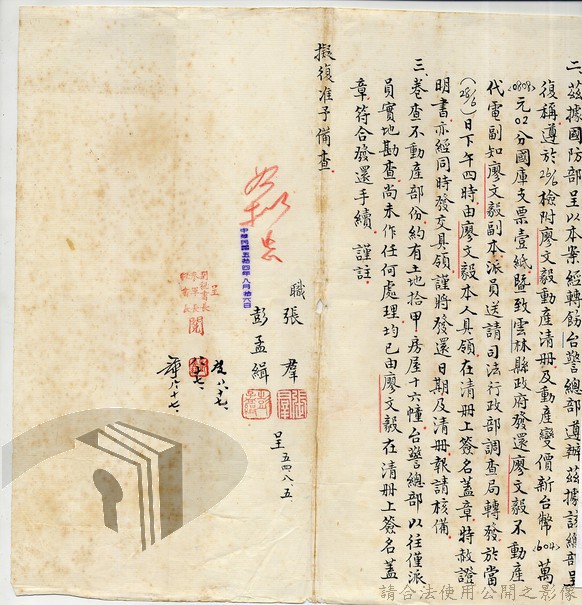 二、茲據國防部呈以本案經轉飭台警總部遵辦茲據該總部呈
復稱遵於28/6檢附廖文毅動產清冊及動產變價新台幣(604)萬
(0808)元02分國庫支票壹紙暨致雲林縣政府發還廖文毅不動產
代電副知廖文毅副本派員送請司法行政部調查局轉發於當
(28/6)日下午四時由廖文毅本人具領在清冊上簽名蓋章特赦證
明書亦經同時發交具領謹將發還日期及清冊報請核備
三、卷查不動產部份約有土地拾甲房屋十六幢台警總部以往僅派
員實地勘查尚未作任何處理均已由廖文毅在清冊上簽名蓋
章符合發還手續 謹註
擬復准予備查
職 張羣
彭孟緝
呈 五四、八、五
中華民國五拾四年八月拾六日
如擬
呈
閱
八、十七
請合法使用公開之影像